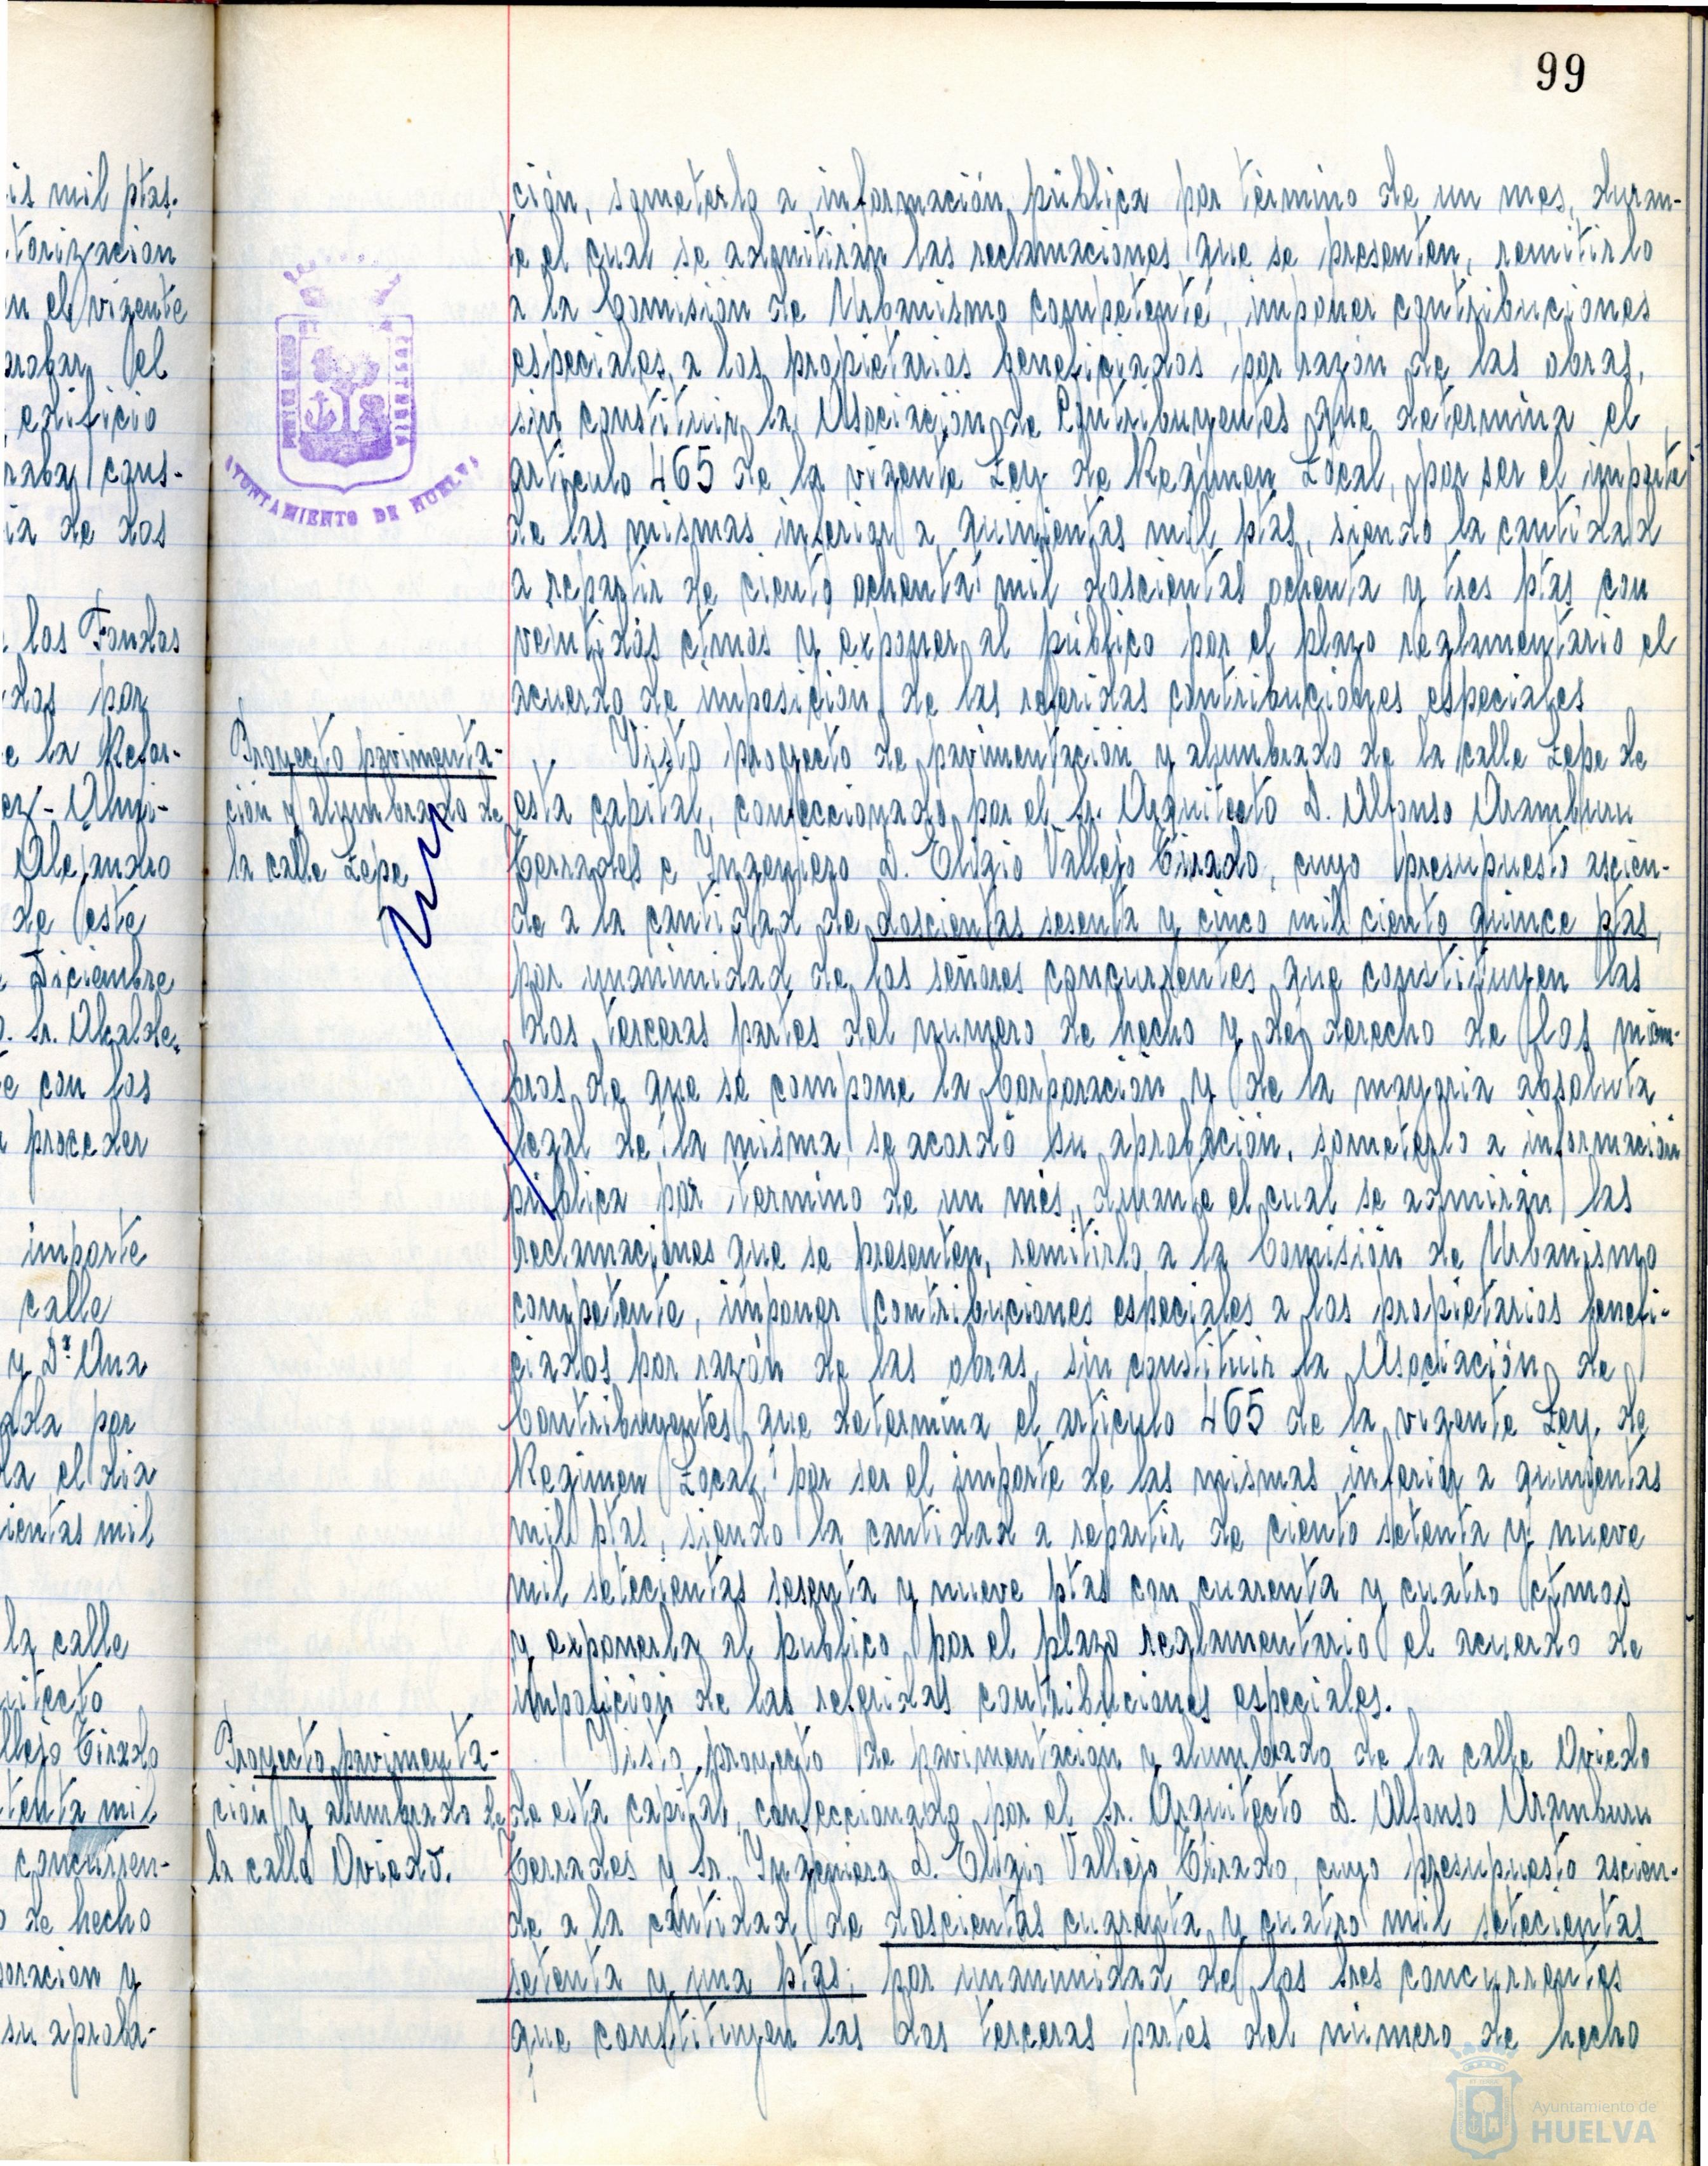 99
is mil ptas.
torizacion
n el vigente
robar el
edificio
raba cons-
ia de dos
los Fondos
dos por
e la Refor-
ez-Olmi-
Alejandro
de este
Diciembre
. Sr. Alcalde.
e con los
proceder
importe
calle
y Dª Ana
ada por
la el dia
ientas mil
la calle
uitecto
llejo Tirado
tenta mil
concurren-
o de hecho
poracion y
su aproba-
AYUNTAMIENTO DE HUELVA
PORTUS MARIS ET CUSTODIA
ción, someterlo a información pública por término de un mes, duran-
te el cual se admitirán las reclamaciones que se presenten, remitirlo
a la Comisión de Urbanismo competente, imponer contribuciones
especiales a los propietarios beneficiados por razón de las obras,
sin constituir la Asociación de Contribuyentes que determina el
articulo 465 de la vigente Ley de Regimen Local, por ser el importe
de las mismas inferior a quinientas mil ptas, siendo la cantidad
a repartir de ciento ochenta mil doscientas ochenta y tres ptas con
veintidós ctmos y exponer al público por el plazo reglamentario el
acuerdo de imposición de las referidas contribuciones especiales
Proyecto pavimenta-
ción y alumbrado de
la calle Lepe
Visto proyecto de pavimentación y alumbrado de la calle Lepe de
esta capital, confeccionado por el Sr. Arquitecto D. Alfonso Aramburu
Terrades e Ingeniero D. Eligio Vallejo Tirado, cuyo presupuesto ascien-
de a la cantidad de doscientas sesenta y cinco mil ciento quince ptas,
por unanimidad de los señores concurrentes que constituyen las
dos terceras partes del numero de hecho y de derecho de los miem-
bros de que se compone la Corporación y de la mayoria absoluta
legal de la misma se acordó su aprobación, someterlo a información
pública por termino de un mes, durante el cual se admirán las
reclamaciones que se presenten, remitirlo a la Comisión de Urbanismo
competente, imponer contribuciones especiales a los propietarios benefi-
ciados por razón de las obras, sin constituir la Asociación de
Contribuyentes que determina el articulo 465 de la vigente Ley de
Regimen Local, por ser el importe de las mismas inferior a quinientas
mil ptas, siendo la cantidad a repartir de ciento setenta y nueve
mil setecientas sesenta y nueve ptas con cuarenta y cuatro ctmos
y exponerla al publico por el plazo reglamentario el acuerdo de
imposicion de las referidas contribuciones especiales.
Proyecto pavimenta-
cion y alumbrado de
la calle Oviedo.
Visto proyecto de pavimentacion y alumbrado de la calle Oviedo
de esta capital, confeccionado por el Sr. Arquitecto D. Alfonso Aramburu
Terrades y Sr. Ingeniero D. Eligio Vallejo Tirado, cuyo presupuesto ascien-
de a la cantidad de doscientas cuarenta y cuatro mil setecientas
setenta y una ptas, por unanimidad de los Sres concurrentes
que constituyen las dos terceras partes del número de hecho
Ayuntamiento de
HUELVA